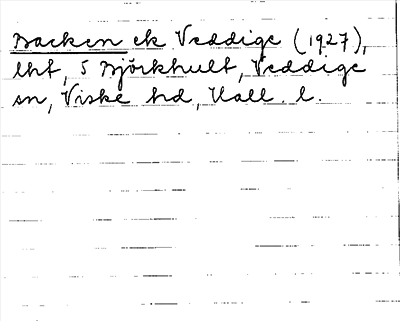 Backen ek Veddige (1927),
lht, S Björkhult, Veddige
sn, Viske hd, Hall. l.